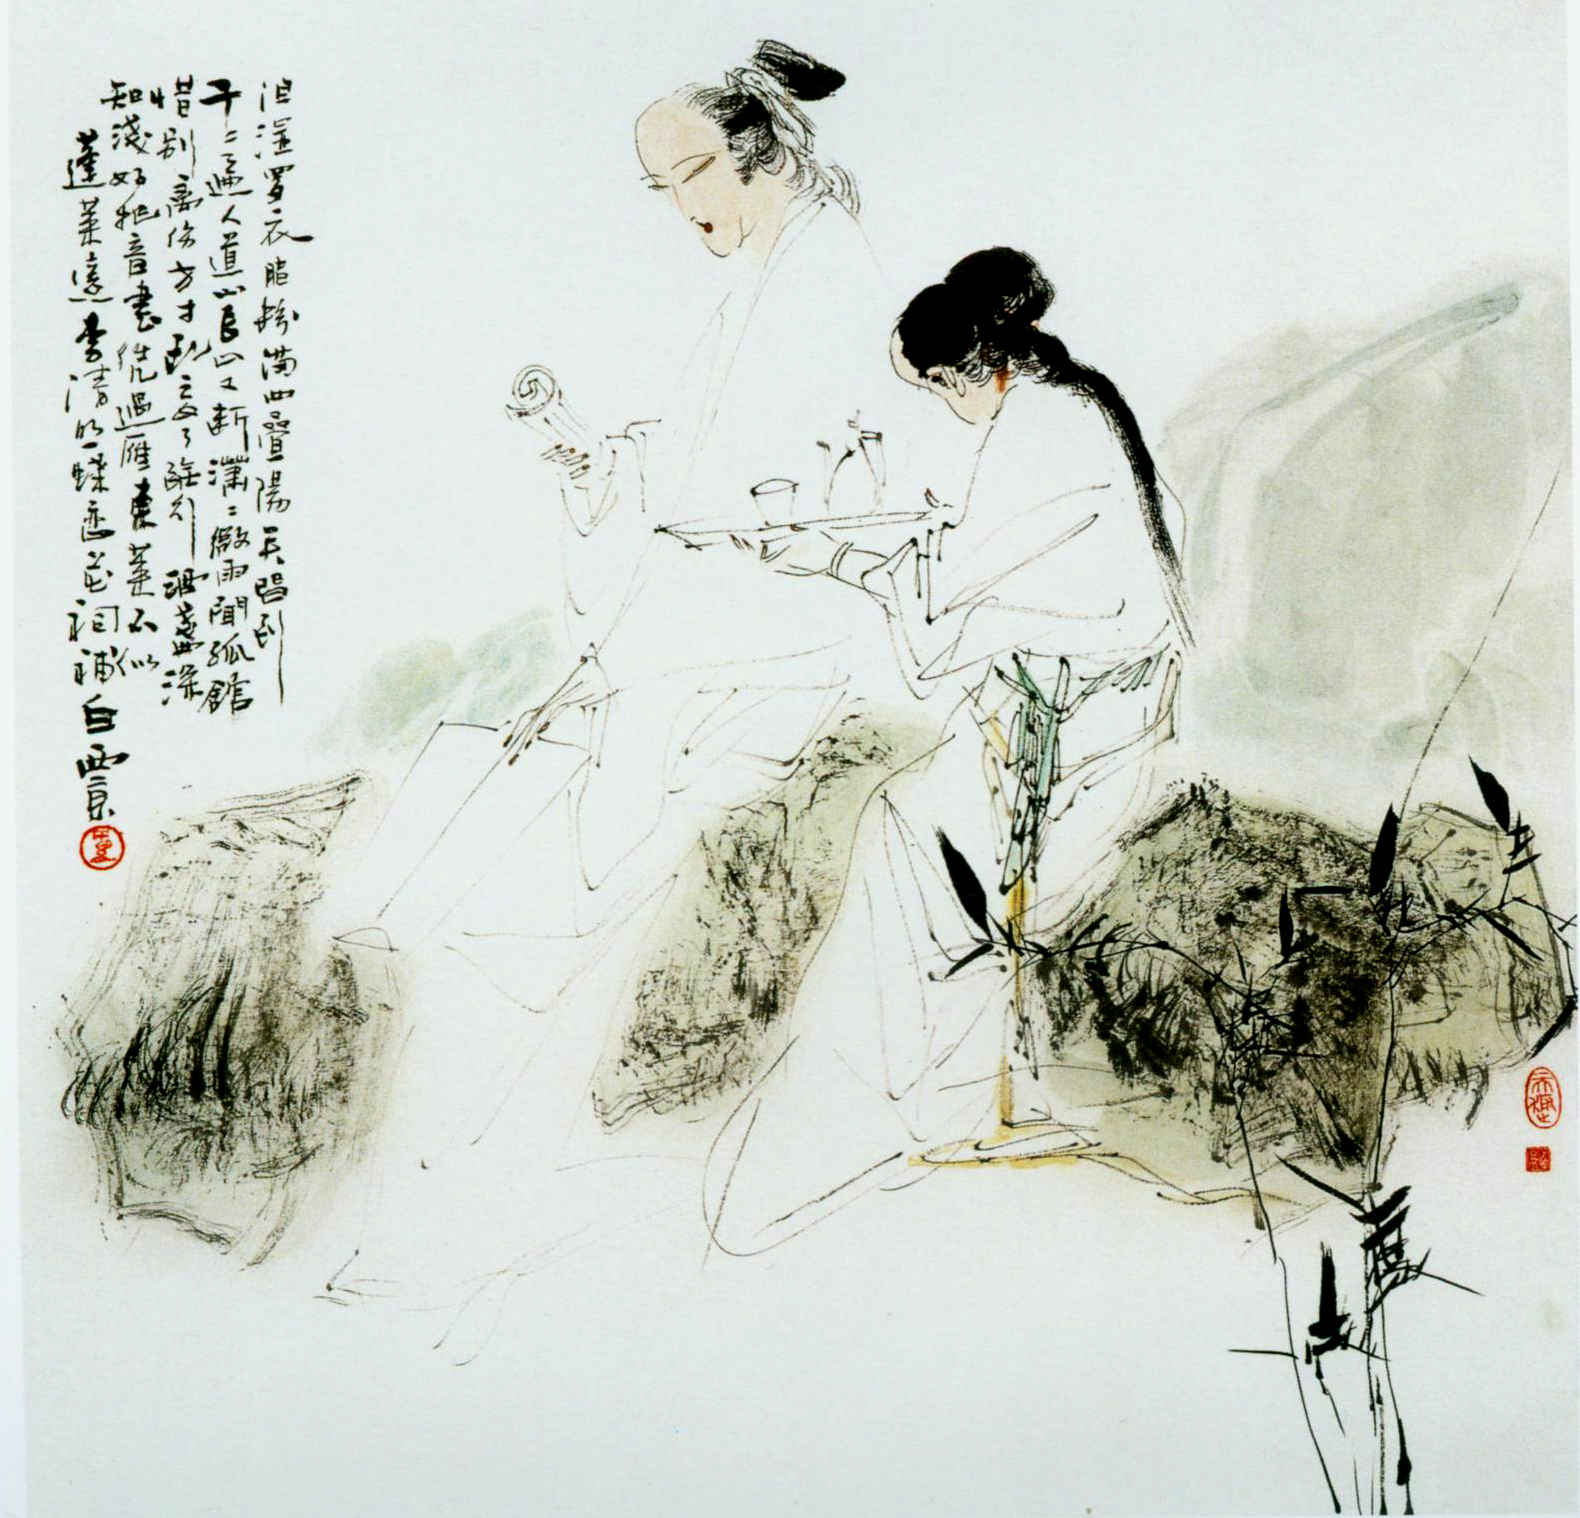 泪溼羅衣脂粉滿四疊陽关唱到
千〻遍人道山長山又斷瀟〻微雨聞孤館
惜别離傷方寸乱忘了臨行酒盞深
知淺好把音書凭過雁東萊不似
蓬萊遠李清照蝶恋花詞補白雲